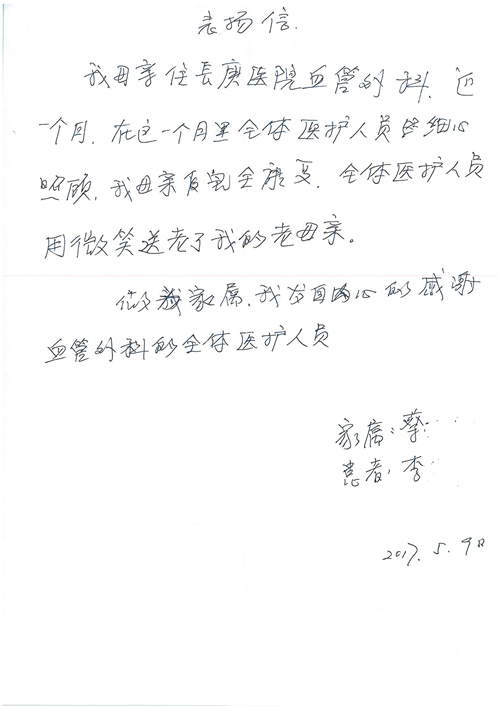 表扬信.
我母亲住長庚医院血管外科.近
一个月.在这一个月里全体医护人员的细心
照顾.我母亲完全康复.全体医护人员
用微笑送走了我的老母亲。
做为家属.我发自内心的感谢
血管外科的全体医护人员
家属:蔡..
患者:李..
2017.5.9日